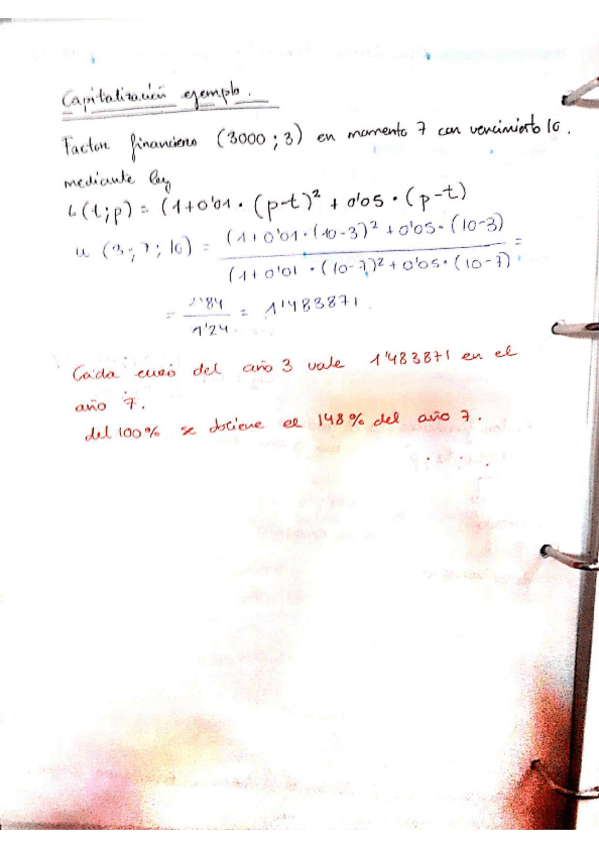 Capitalización ejemplo.
Factor financiero (3000 ; 3) en momento 7 con vencimiento 10.
mediante ley
L(t;p) = (1+0'01 · (p-t)² + 0'05 · (p-t)
u (3; 7; 10) = (1+0'01·(10-3)² + 0'05·(10-3)
(1+0'01 ·(10-7)²+0'05·(10-7) =
= 1'84
1'24 = 1'483871.
Cada euro del año 3 vale 1'483871 en el
año 7.
del 100% se obtiene el 148% del año 7.